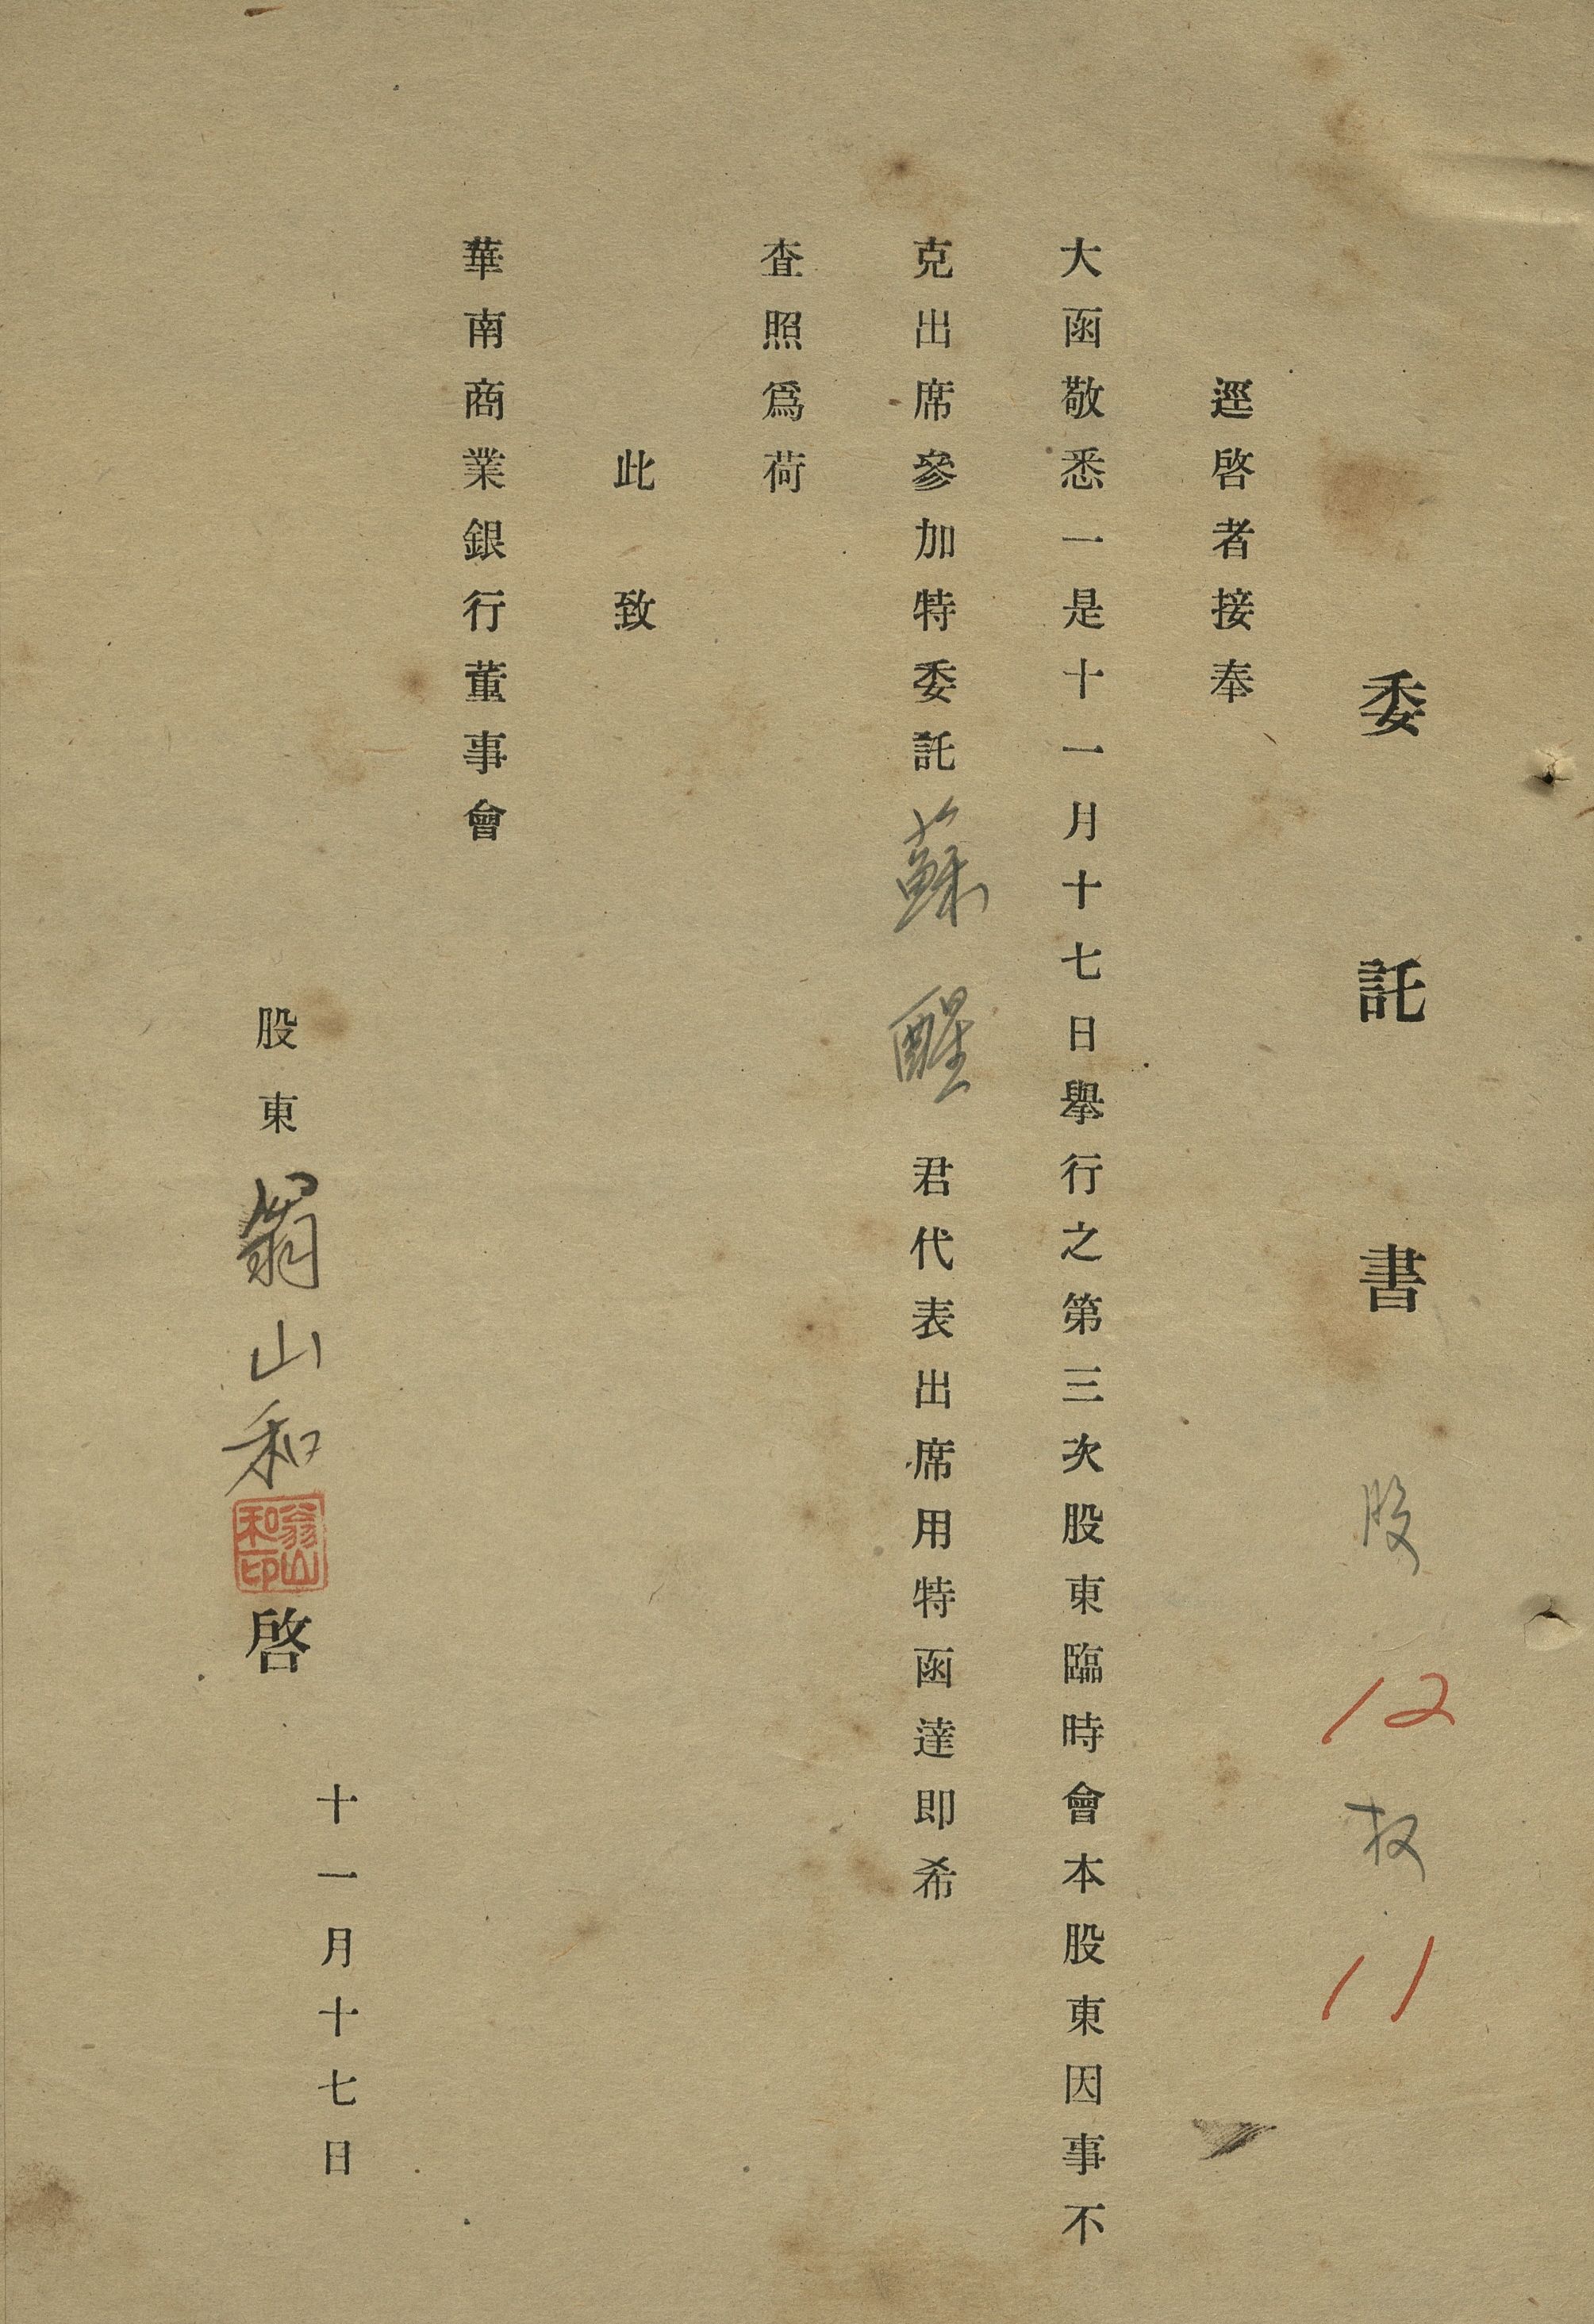 委託書 股 12 权 11
逕啓者接奉
大函敬悉一是十一月十七日舉行之第三次股東臨時會本股東因事不
克出席參加特委託蘇醒君代表出席用特函達即希
查照爲荷
此致
華南商業銀行董事會
十一月十七日
股東翁山和啓
翁山和印